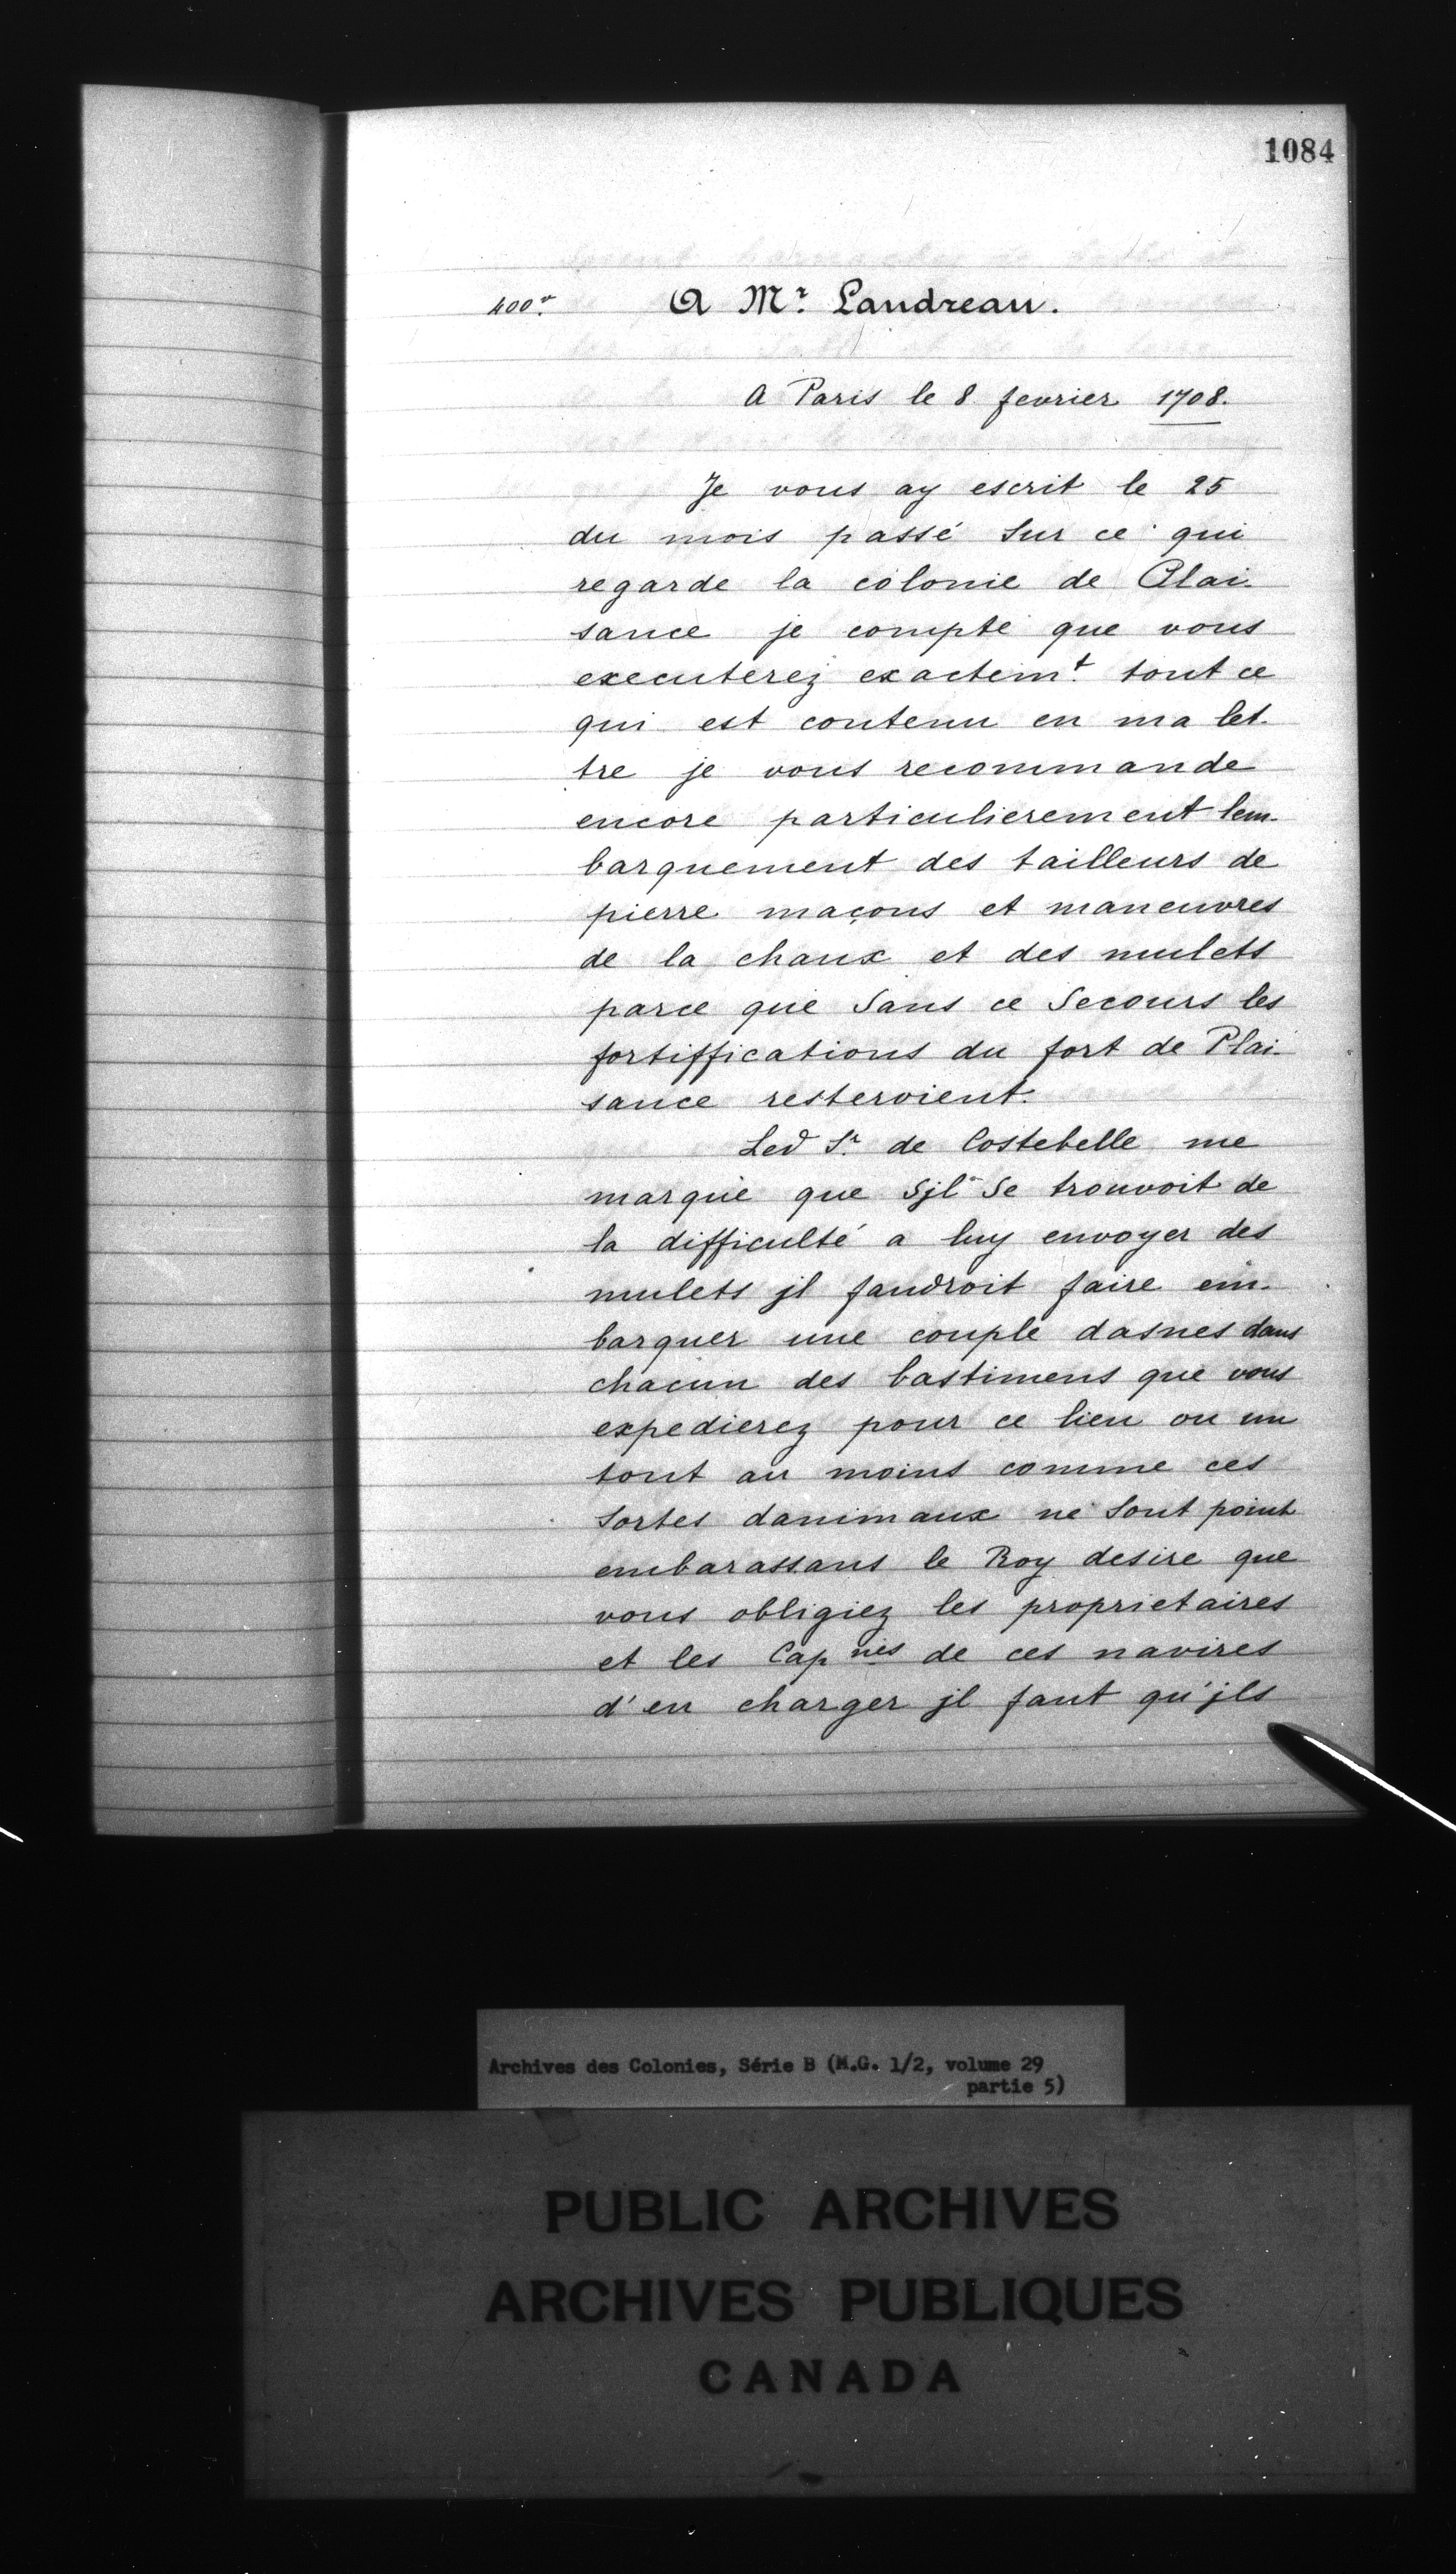 1084
400 v.
A Mr. Landreau.
A Paris le 8 fevrier 1708.
Je vous ay escrit le 25
du mois passé sur ce qui
regarde la colonie de Plai-
sance je compte que vous
executerez exactemt. tout ce
qui est contenu en ma let-
tre je vous recommande
encore particulierement lem-
barquement des tailleurs de
pierre maçons et maneuvres
de la chaux et des mulets
parce que sans ce secours les
fortiffications du fort de Plai-
sance resteroient.
Led Sr. de Costebelle me
marque que sjl se trouvoit de
la difficulté a luy envoyer des
mulets jl faudroit faire em-
barquer une couple dasnes dans
chacun des bastimens que vous
expedierez pour ce lieu ou un
tout au moins comme ces
sortes danimaux ne sont point
embarassans le Roy desire que
vous obligiez les proprietaires
et les Capnes de ces navires
d'en charger jl faut qu'jls
Archives des Colonies, Série B (M.G. 1/2, volume 29
partie 5)
PUBLIC ARCHIVES
ARCHIVES PUBLIQUES
CANADA